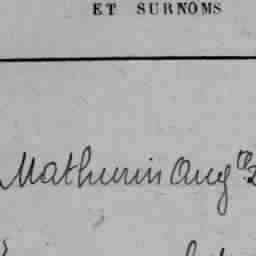 ET SURNOMS
Mathurin Aug